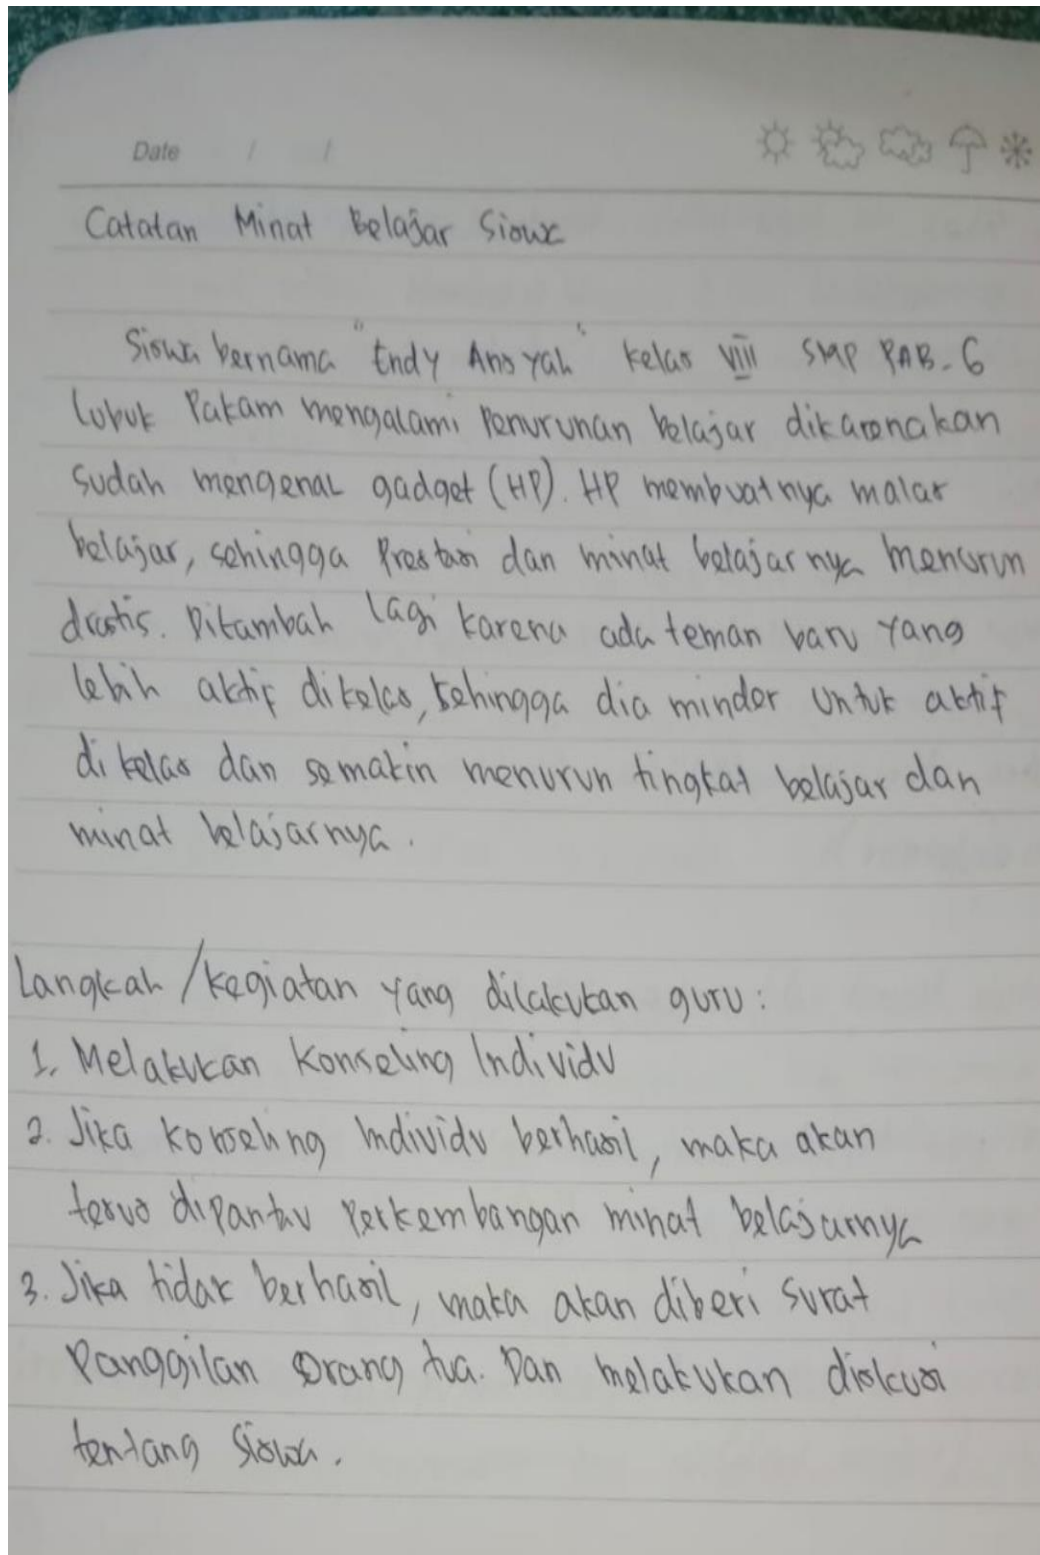 Date / /
Catatan Minat Belajar Siswa
Siswa bernama "Endy Ansyah" kelas VIII SMP PAB-6
Lubuk Pakam mengalami Penurunan belajar dikarenakan
sudah mengenal gadget (HP). HP membuatnya malas
belajar, sehingga Prestasi dan minat belajarnya menurun
drastis. Ditambah lagi karena ada teman baru yang
lebih aktif dikelas, sehingga dia minder untuk aktif
di kelas dan semakin menurun tingkat belajar dan
minat belajarnya.
Langkah/kegiatan yang dilakukan guru:
1. Melakukan Konseling Individu
2. Jika konseling Individu berhasil, maka akan
terus dipantau Perkembangan minat belajarnya
3. Jika tidak berhasil, maka akan diberi surat
Panggilan Orang tua. Dan melakukan diskusi
tentang Siswa.